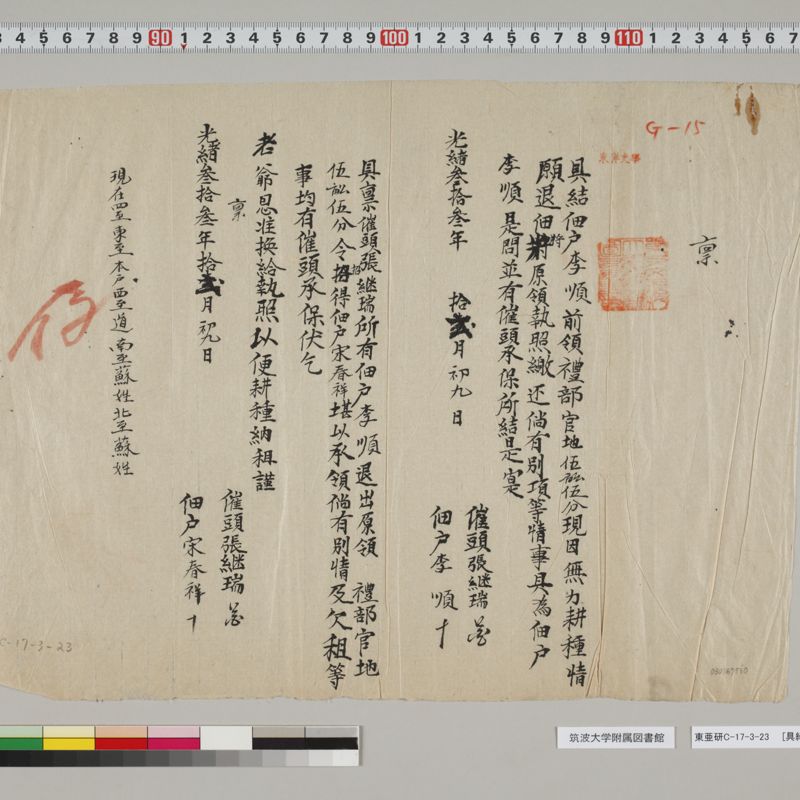 3 4 5 6 7 8 9 90 1 2 3 4 5 6 7 8 9 100 1 2 3 4 5 6 7 8 9 110 1 2 3 4 5 6 7
G-15
東洋大學
稟
具結佃户李順前領禮部官地伍畝伍分現因無力耕種情
願退佃將原領執照繳还倘有別項等情事具為佃户
李順是問並有催頭承保所結是寔
光緒叁拾叁年 拾貳月初九日
催頭張継瑞
佃户李順 十
具稟催頭張継瑞所有佃户李順退出原領 禮部官地
伍畝伍分今招得佃户宋春祥堪以承領倘有別情及欠租等
事均有催頭承保伏乞
老爺恩准換給執照以便耕種納租謹
稟
光緒叁拾叁年拾貳月初九日
催頭張継瑞
佃户宋春祥 十
現在四至東至本户西至道南至蘇姓北至蘇姓
存
C-17-3-23
筑波大学附属図書館
東亜研C-17-3-23 [具結